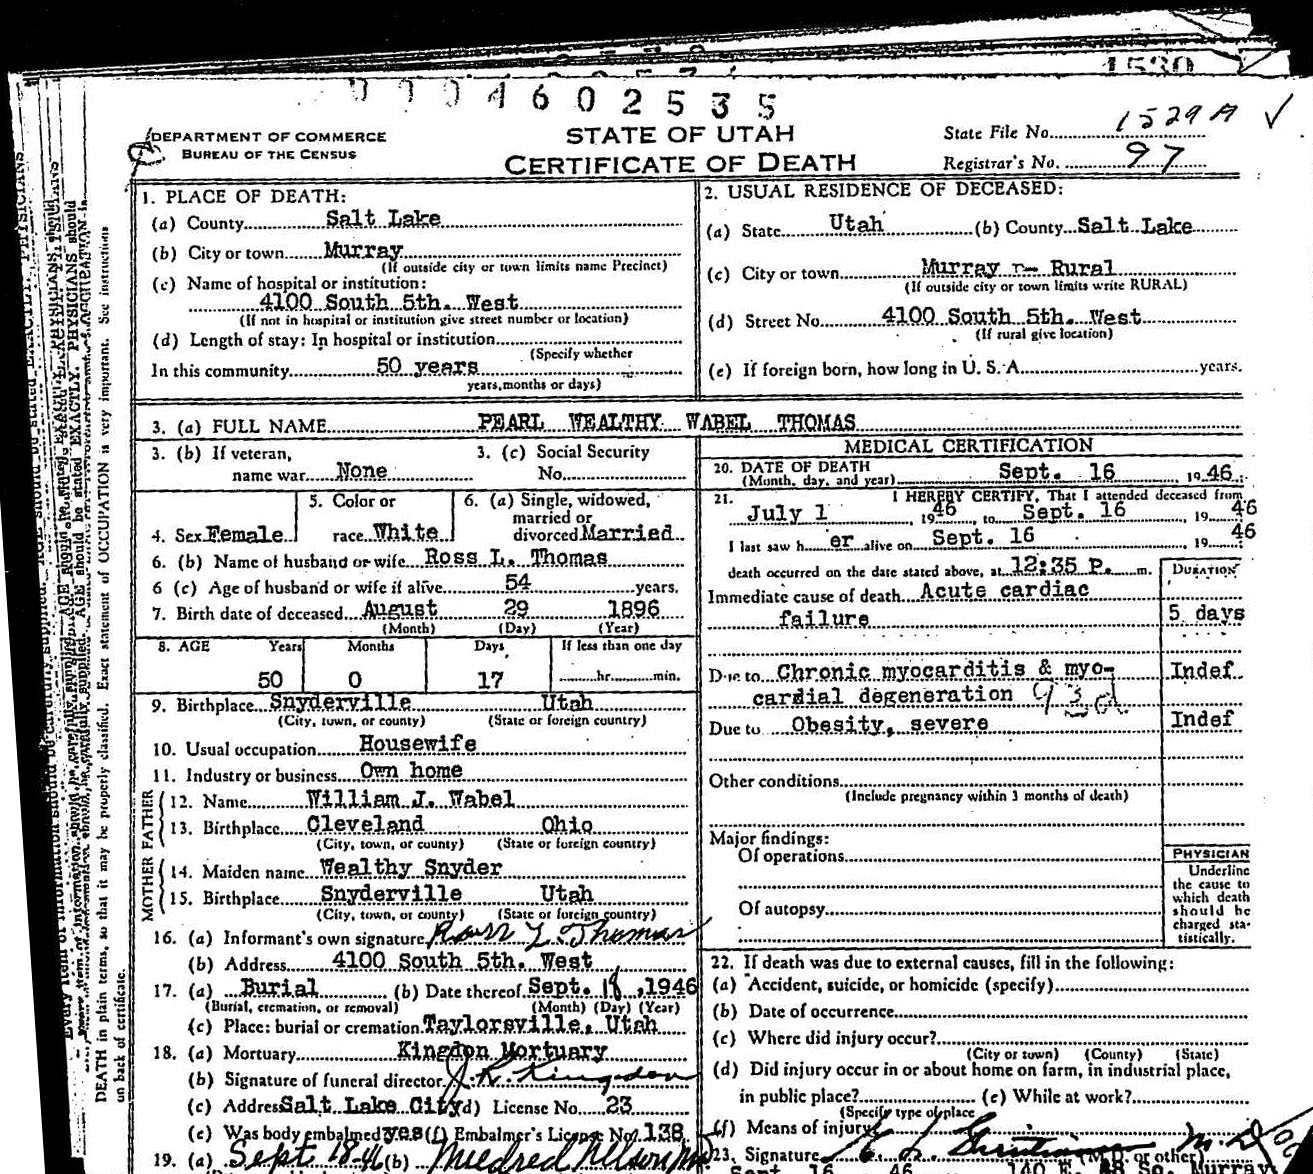 1530
0004602535
DEPARTMENT OF COMMERCE
BUREAU OF THE CENSUS
STATE OF UTAH
CERTIFICATE OF DEATH
State File No. 1529A ✓
Registrar's No. 97
1. PLACE OF DEATH:
(a) County Salt Lake
(b) City or town Murray
(If outside city or town limits name Precinct)
(c) Name of hospital or institution:
4100 South 5th. West
(If not in hospital or institution give street number or location)
(d) Length of stay: In hospital or institution
(Specify whether
In this community 50 years
years, months or days)
2. USUAL RESIDENCE OF DECEASED:
(a) State Utah (b) County Salt Lake
(c) City or town Murray -- Rural
(If outside city or town limits write RURAL)
(d) Street No. 4100 South 5th. West
(If rural give location)
(e) If foreign born, how long in U. S. A. years.
3. (a) FULL NAME PEARL WEALTHY WABEL THOMAS
3. (b) If veteran,
name war None
3. (c) Social Security
No.
4. Sex Female
5. Color or
race White
6. (a) Single, widowed,
married or
divorced Married
6. (b) Name of husband or wife Ross L. Thomas
6 (c) Age of husband or wife if alive 54 years.
7. Birth date of deceased August 29 1896
(Month) (Day) (Year)
8. AGE Years Months Days If less than one day
50 0 17 hr. min.
9. Birthplace Snyderville Utah
(City, town, or county) (State or foreign country)
10. Usual occupation Housewife
11. Industry or business Own home
FATHER
12. Name William J. Wabel
13. Birthplace Cleveland Ohio
(City, town, or county) (State or foreign country)
MOTHER
14. Maiden name Wealthy Snyder
15. Birthplace Snyderville Utah
(City, town, or county) (State or foreign country)
16. (a) Informant's own signature Ross L Thomas
(b) Address 4100 South 5th. West
17. (a) Burial (b) Date thereof Sept. 18, 1946
(Burial, cremation, or removal) (Month) (Day) (Year)
(c) Place: burial or cremation Taylorsville, Utah
18. (a) Mortuary Kingdon Mortuary
(b) Signature of funeral director J. R. Kingdon
(c) Address Salt Lake City (d) License No. 23
(e) Was body embalmed yes (f) Embalmer's License No. 138
19. (a) Sept 18-46 (b) Mildred Nelson
MEDICAL CERTIFICATION
20. DATE OF DEATH Sept. 16 1946.
(Month, day, and year)
21. I HEREBY CERTIFY, That I attended deceased from
July 1, 1946, to Sept. 16 1946
I last saw her alive on Sept. 16 1946
death occurred on the date stated above, at 12:35 P. m.
DURATION
Immediate cause of death Acute cardiac
failure 5 days
Due to Chronic myocarditis & myo- Indef
cardial degeneration 93d
Due to Obesity, severe Indef
Other conditions
(Include pregnancy within 3 months of death)
Major findings:
Of operations
Of autopsy
PHYSICIAN
Underline
the cause to
which death
should be
charged sta-
tistically.
22. If death was due to external causes, fill in the following:
(a) Accident, suicide, or homicide (specify)
(b) Date of occurrence
(c) Where did injury occur?
(City or town) (County) (State)
(d) Did injury occur in or about home on farm, in industrial place,
in public place? (e) While at work?
(Specify type of place
(f) Means of injury
23. Signature (M.D. or other)
Sept 16 46 140 E. 48 So. Murray
DEATH in plain terms, so that it may be properly classified. Exact statement of OCCUPATION is very important. See instructions
on back of certificate.